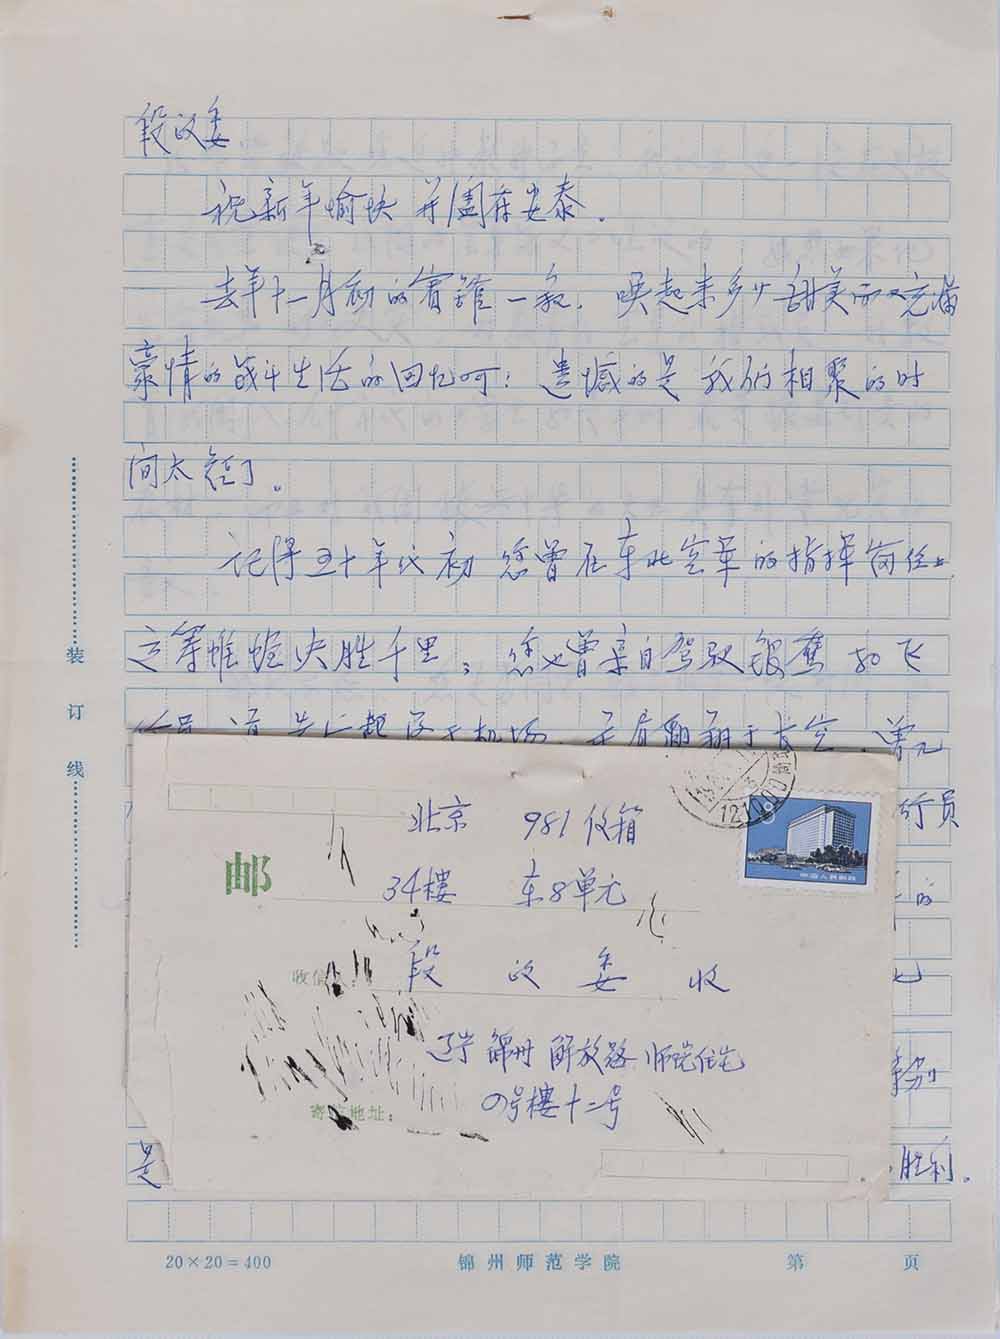 段政委
祝新年愉快并阖府安泰.
去年十一月初的宾馆一叙.唤起来多少甜美而又充满
豪情的战斗生活的回忆呵;遗憾的是我们相聚的时
间太短了。
记得五十年代初您曾在东北空军的指挥岗位上
运筹帷幄决胜千里,您也曾亲自驾驶银鹰和飞
机场
翱翔于长空、曾
行员
的
特别
是
胜利.
装
订
线
北京 981信箱
34樓 东8单元
邮
收信
段政委 收
辽宁锦州解放路师院住宅
寄 地址:
四号樓十二号
8
中国人民邮政
12
20×20=400 锦州师范学院 第 页